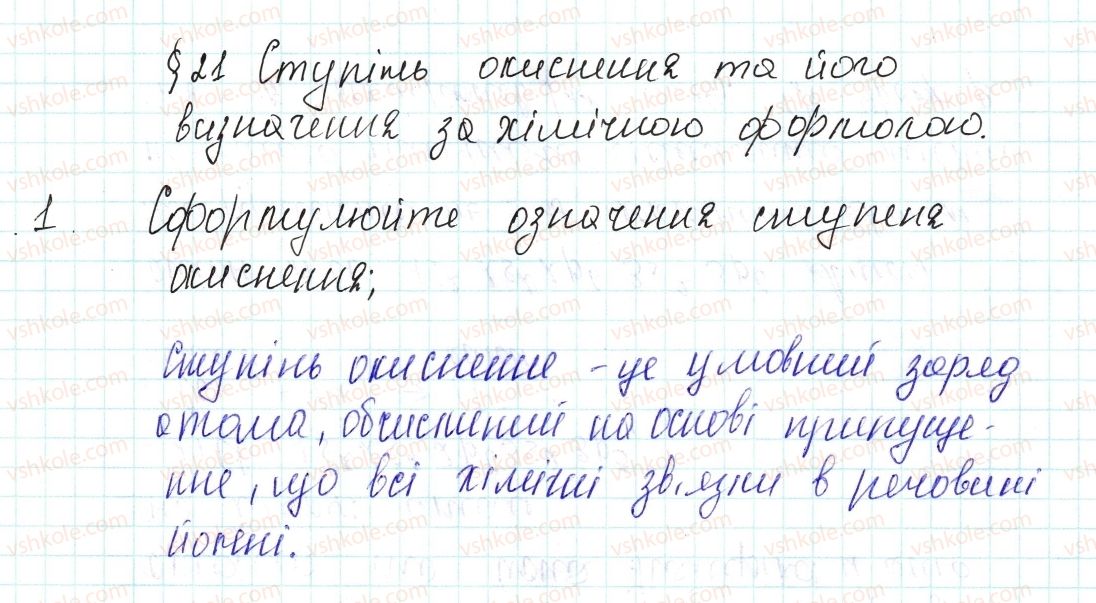 §21 Ступінь окиснення та його
визначення за хімічною формолою.
1. Сформулюйте означення ступеня
окиснення;
Ступінь окиснення – це умовний заряд
атома, обчислений на основі припуще-
ння, що всі хімічні зв'язки в речовині
йонні.